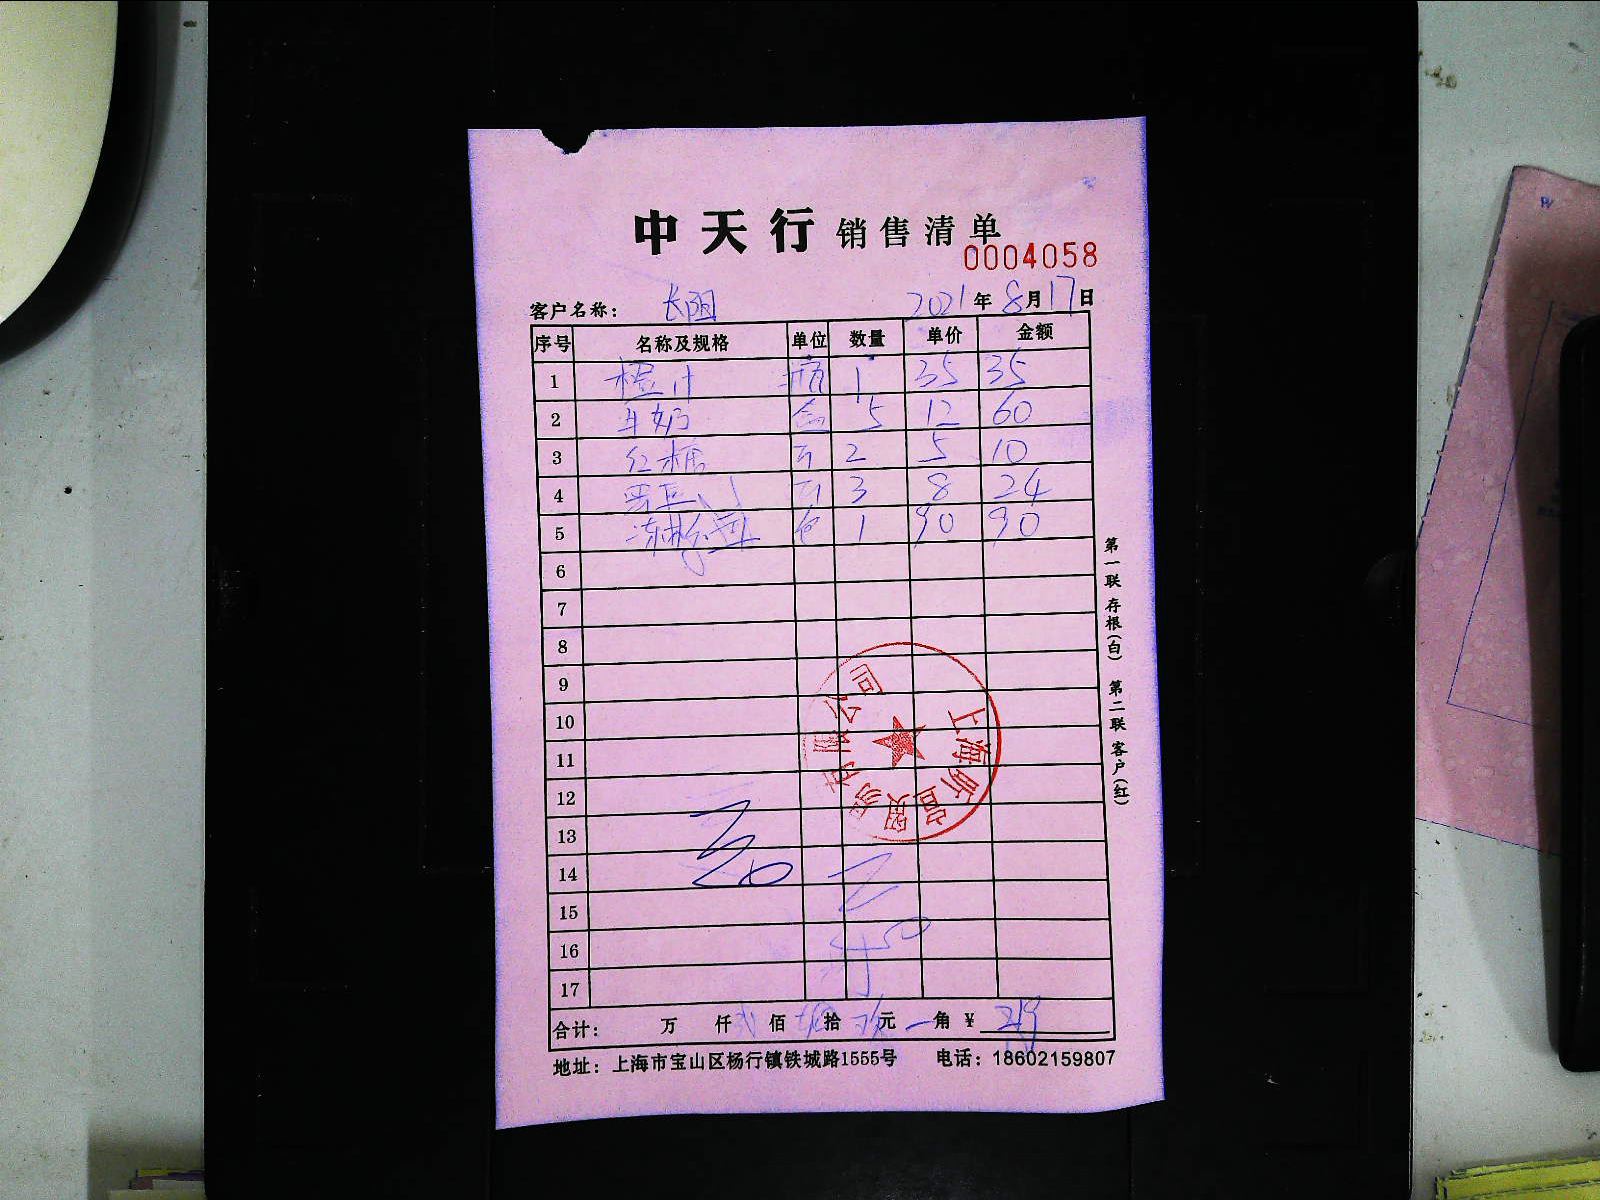 中天行 销售清单
0004058
客户名称： 长阳 2021年8月17日
序号 名称及规格 单位 数量 单价 金额
1 橙汁 瓶 1 35 35
2 牛奶 盒 5 12 60
3 红糖 2 5 10
4 3 8 24
5 包 1 90 90
6
7
8
9
10
11
12
13
14
15
16
17
合计： 万 仟 佰 拾 元 角 ¥ 219
地址：上海市宝山区杨行镇铁城路1555号 电话：18602159807
第一联 存根（白） 第二联 客户（红）